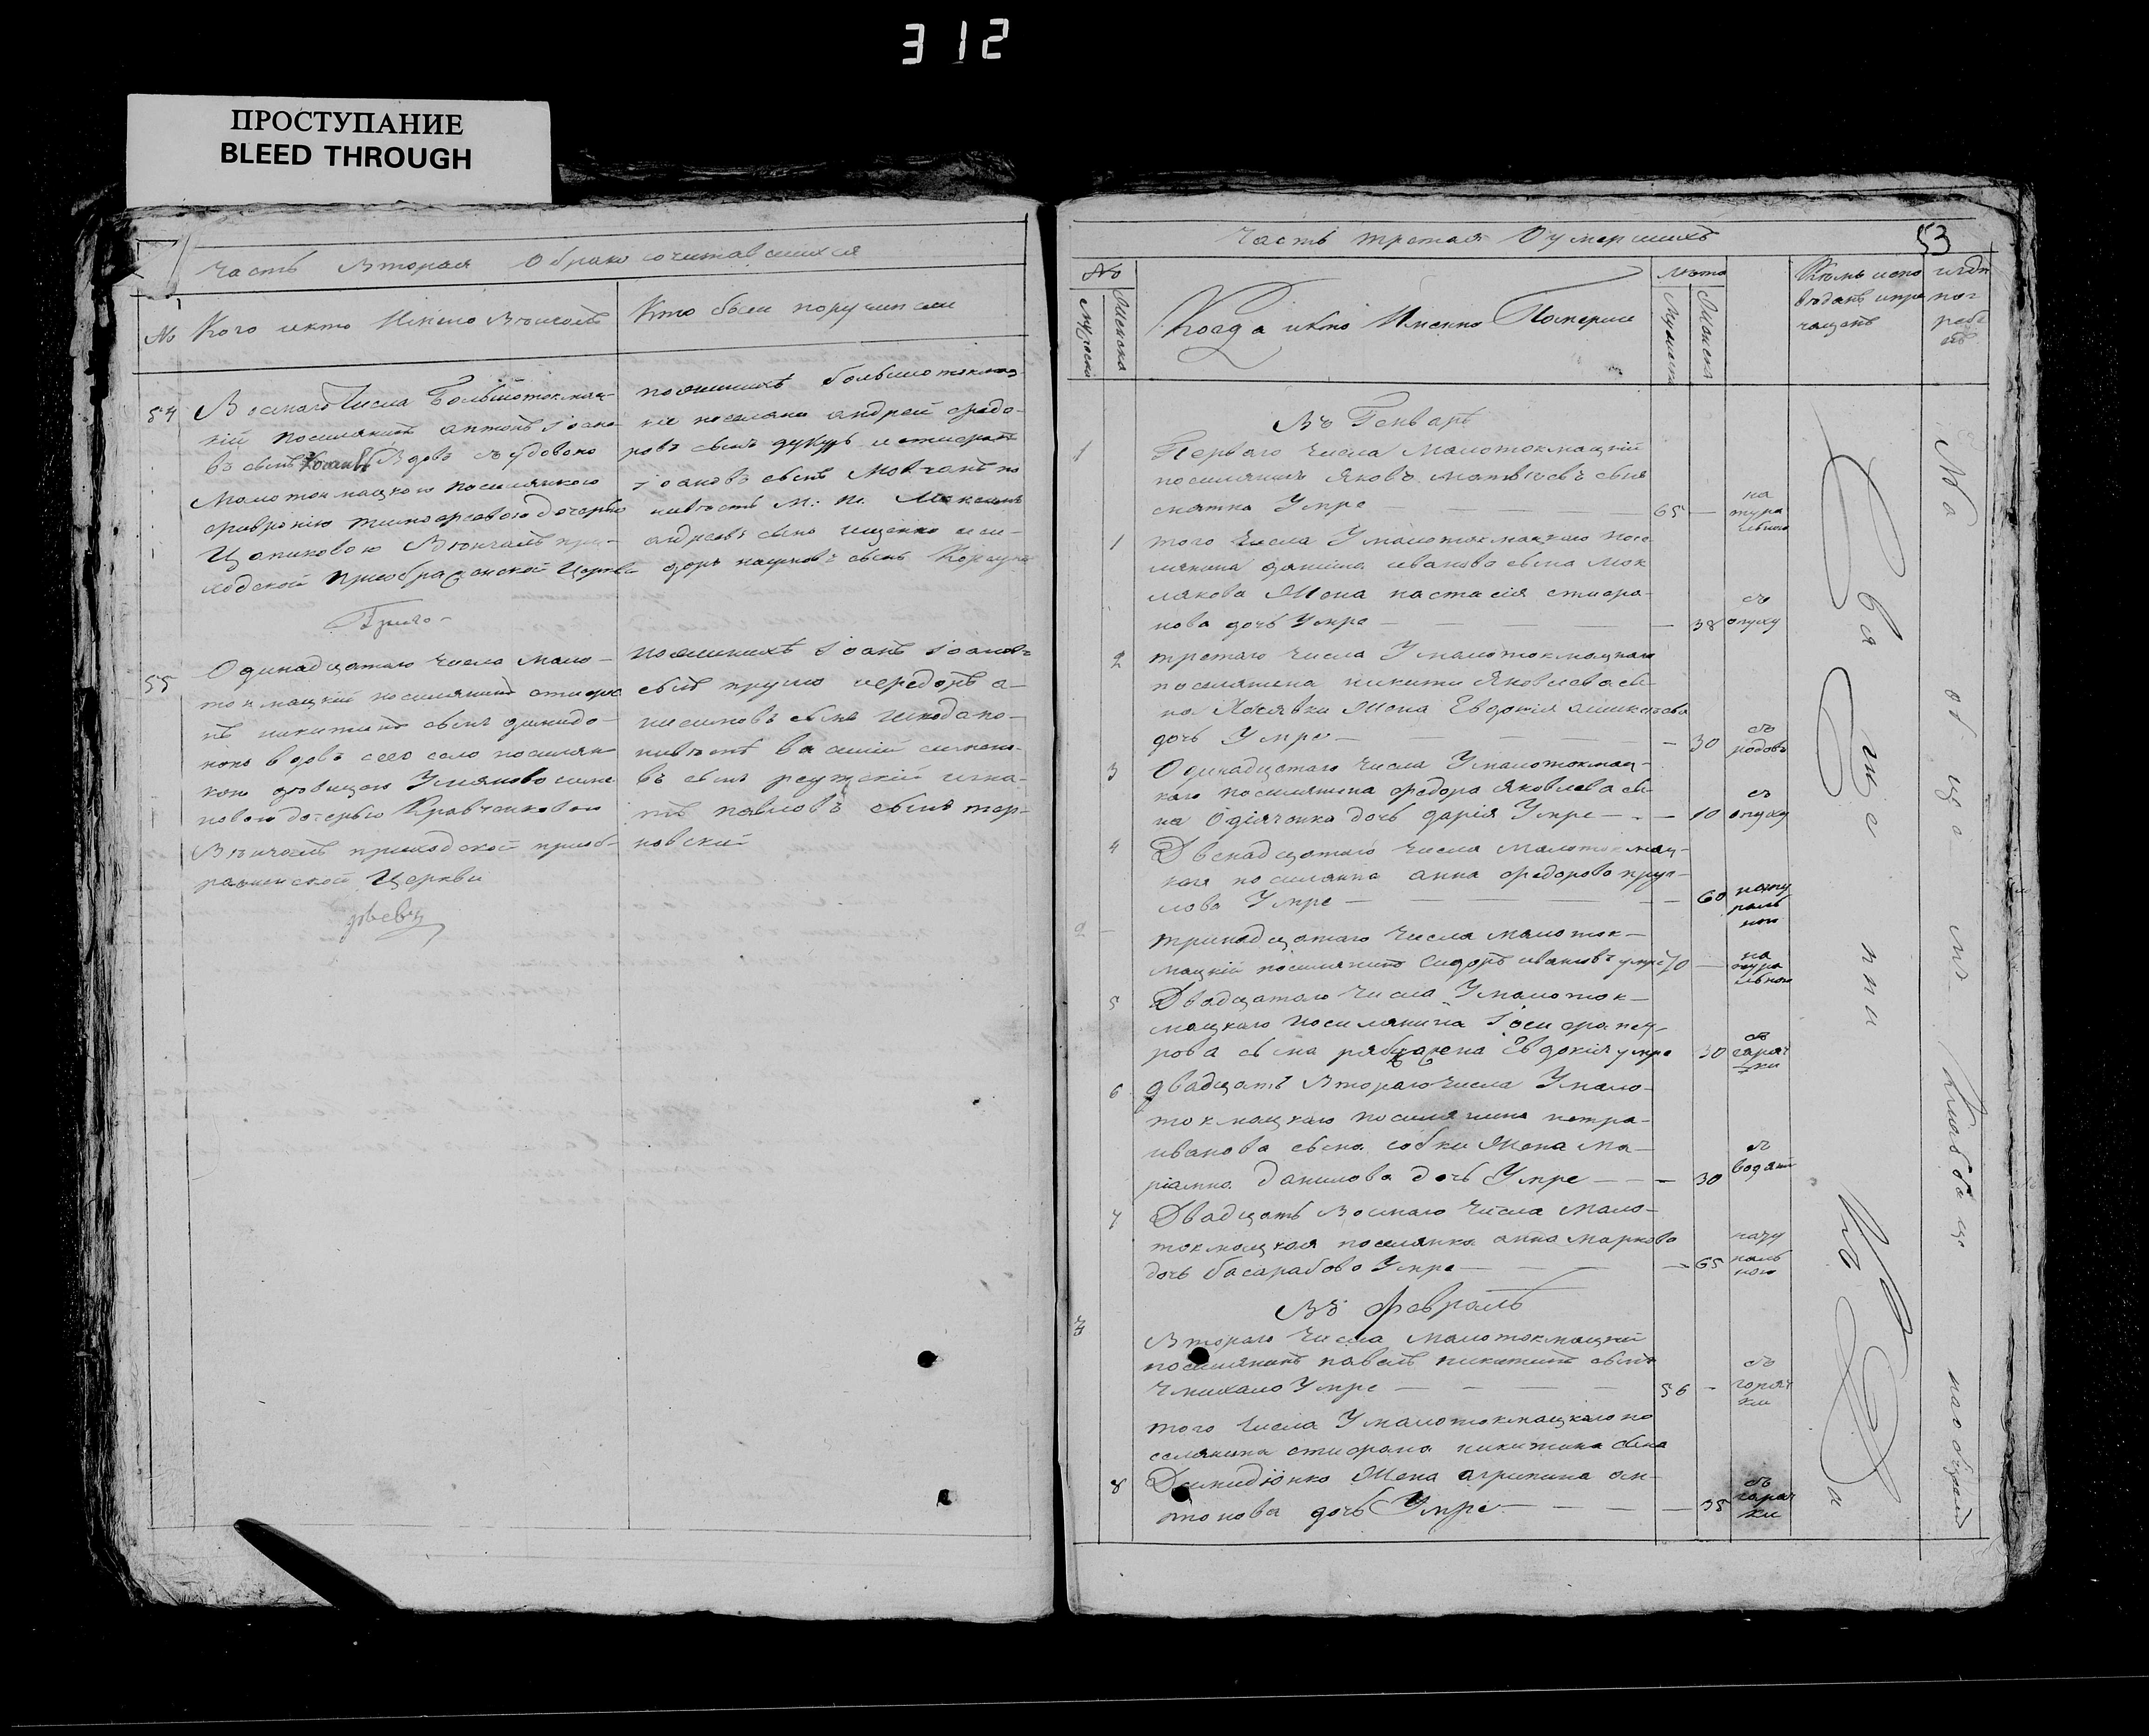 312
ПРОСТУПАНИЕ
BLEED THROUGH
Часть Вторая О бракосочитавшихся
№ Кого и кто Именно Венчалъ
Кто были поручители
54 Восмаго Числа Большотокмац-
кій поселянинъ антонъ іоано-
въ сынъ Вдовъ съ удовою
Малотокмацкою поселянкою
февронію тимофеевою дочерью
Цапиковою Венчалъ при-
ходской преображенской Церкви
поженихѣ большотокмац-
кіе поселяне андрей федо-
ровъ сынъ дукуръ и стифанъ
іоановъ сынъ Мовчанъ по
невестѣ М: т. Максимъ
андреевъ сынъ ищенко и си-
доръ наумовъ сынъ
55 Одинадцатаго Числа Мало-
токмацкій поселянинъ стифа
нъ никитинъ сынъ димидо-
нко вдовъ сего села поселян
кою девицею Ульяною симо
новою дочерью Кравченковою
Венчалъ приходской преоб-
раженской Церкви
поженихѣ іоанъ іоановъ
сынъ кругло федоръ а-
нисимовъ сынъ шкода по-
невестѣ василій симоно-
въ сынъ реутскій игна-
тъ павловъ сынъ тер-
новскій
Часть третая О умершихъ
53
№
Мужеска
Женска
Когда икто Именно Померше
лѣта
Мужеска
Женска
Кѣмъ испо
веданъ ипре
чащенъ
игде
пог
ребе
нъ
Въ Генварѣ
1 Перваго Числа Малотокмацкій
поселянинъ Яковъ матвѣевъ сынъ
снятка Умре — 65 — на
тура
льною
1 того Числа Умалотокмацкаго посе
лянина данила иванова сына мок
лякова Жена настасія стифа-
нова дочь Умре — 38 съ
опуху
2 третаго Числа Умалотокмацкаго
поселянина никити Яковлева сы-
на Жена Евдокія
дочь Умре — 30 съ
родовъ
3 Одинадцатаго Числа Умалотокмац-
каго поселянина федора Яковлева сы-
на Одіяченка дочь дарія Умре — 10 съ
опуху
4 Двенадцатаго Числа Малотокмац-
кая поселянка анна федорова круг-
лова Умре — 60 нату
раль
ною
2 тринадцатаго Числа малоток-
мацкій поселянинъ Сидоръ ивановъ умре 70 — на
тура
льною
5 Двадцатаго Числа Умалоток-
мацкаго поселянина іосифа пет-
рова сына Жена Евдокія умре 30 съ
гаряч
ки
6 двадцать Втораго Числа Умало-
токмацкаго поселянина петра
иванова сына собки Жена Ма-
ріамна данилова дочь Умре — 30 съ
водяни
7 Двадцать Восмаго Числа Мало-
токмацкая поселянка анна маркова
дочь басарабова Умре — 65 нату
раль
ною
Въ февралѣ
3 Втораго Числа малотокмацкій
поселянинъ павелъ никитинъ сынъ
Чмихало Умре — 56 — съ
горяч
ки
того Числа Умалотокмацкаго по
селянина стифана никитина сына
8 Димидіонко Жена агрипина ан-
тонова дочь Умре — 35 съ
гаряч
ки
Священникъ
На общемъ Кладбище